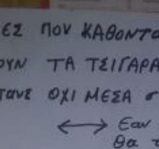 ΕΣ ΠΟΥ ΚΑΘΟΝΤΑ
ΟΥΝ ΤΑ ΤΣΙΓΑΡΑ
ΤΑΝΕ ΟΧΙ ΜΕΣΑ σ
↔ Εαν
θα